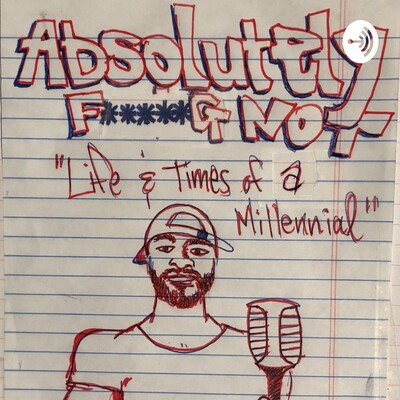 Absolutely
F*****G NOT
"Life & Times of a
Millennial"